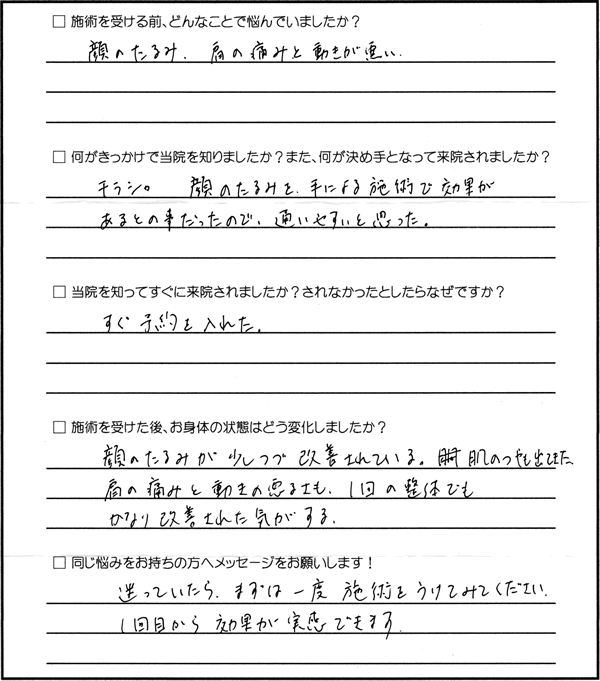 □ 施術を受ける前、どんなことで悩んでいましたか?
顔のたるみ、肩の痛みと動きが悪い。
□ 何がきっかけで当院を知りましたか?また、何が決め手となって来院されましたか?
チラシ。 顔のたるみを、手による施術で効果が
あるとの事だったので、通いやすいと思った。
□ 当院を知ってすぐに来院されましたか?されなかったとしたらなぜですか?
すぐ予約を入れた。
□ 施術を受けた後、お身体の状態はどう変化しましたか?
顔のたるみが少しづつ改善されている。肌のつやも出てきた、
肩の痛みと動きの悪るさも、1回の整体でも
かなり改善された気がする。
□ 同じ悩みをお持ちの方へメッセージをお願いします!
迷っていたら、まずは一度施術をうけてみてください。
1回目から効果が実感できます。